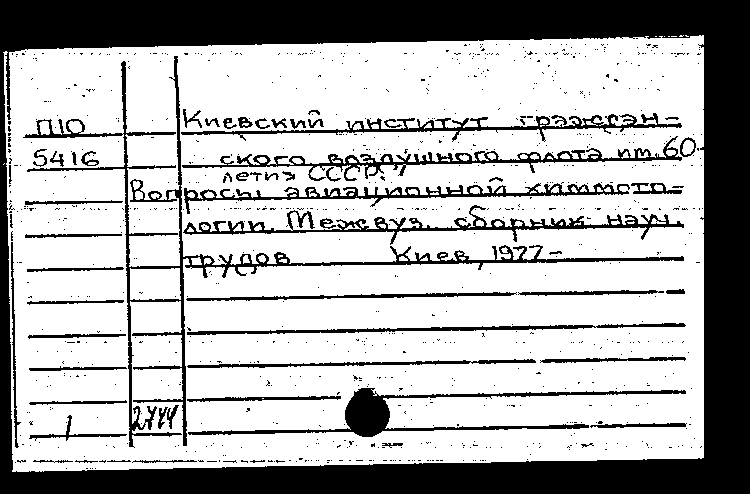 П10 Киевский институт граждан-
5416 ского воздушного флота им. 60-
летия СССР."
Вопросы авиационной химмото-
логии. Межвуз. сборник науч.
трудов Киев, 1977-
1